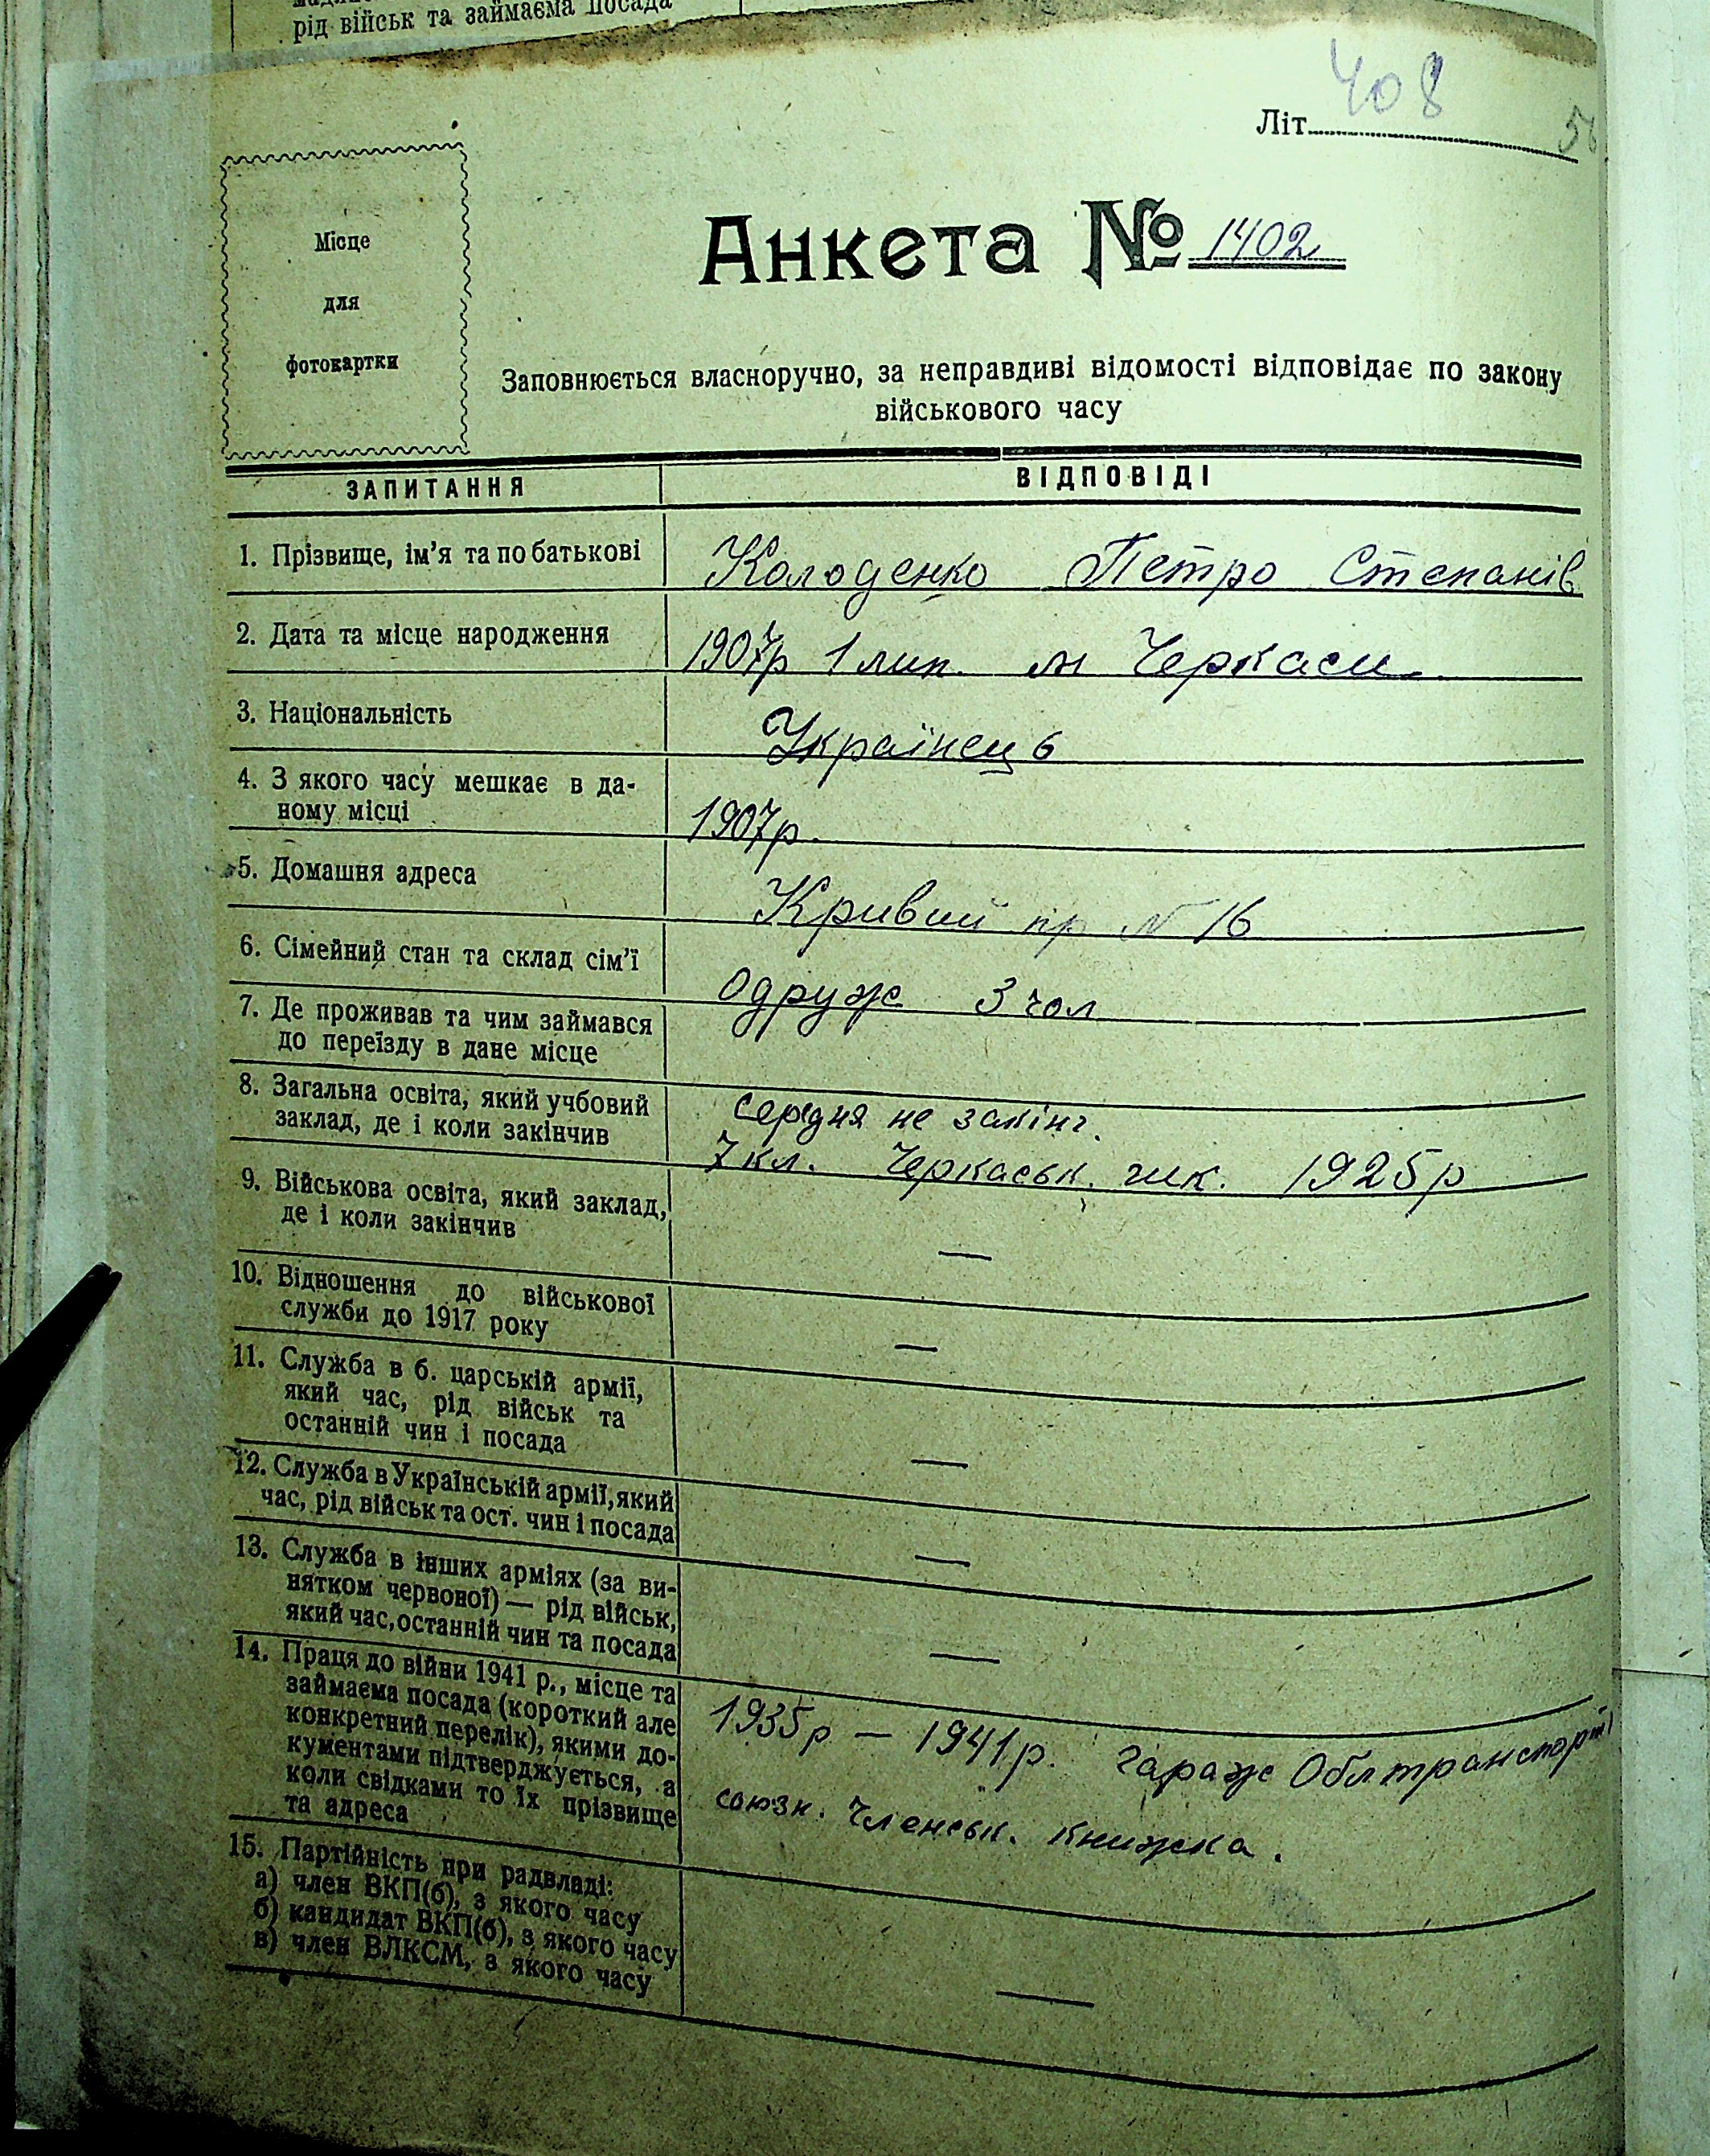 рід військ та займаєма посада
408
Літ
Місце
для
фотокартки
Анкета № 1402
Заповнюється власноручно, за неправдиві відомості відповідає по закону
військового часу
ЗАПИТАННЯ ВІДПОВІДІ
1. Прізвище, ім'я та по батькові Колоденко Петро Степанів
2. Дата та місце народження 1907р 1 лип. м Черкаси
3. Національність Українець
4. З якого часу мешкає в да-
ному місці 1907р.
5. Домашня адреса Кривий пр № 16
6. Сімейний стан та склад сім'ї Одруже 3 чол
7. Де проживав та чим займався
до переїзду в дане місце
8. Загальна освіта, який учбовий середня не закінч.
заклад, де і коли закінчив 7 кл. Черкаськ. шк. 1925р
9. Військова освіта, який заклад,
де і коли закінчив —
10. Відношення до військової
служби до 1917 року —
11. Служба в б. царській армії,
який час, рід військ та
останній чин і посада —
12. Служба в Українській армії, який
час, рід військ та ост. чин і посада —
13. Служба в інших арміях (за ви-
нятком червоної) — рід військ,
який час, останній чин та посада —
14. Праця до війни 1941 р., місце та
займаєма посада (короткий але 1935р — 1941р. гараж Облтранспорт
конкретний перелік), якими до-
кументами підтверджується, а союзн. членськ. книжка.
коли свідками то їх прізвище
та адреса
15. Партійність при радвладі:
а) член ВКП(б), з якого часу
б) кандидат ВКП(б), з якого часу
в) член ВЛКСМ, з якого часу —